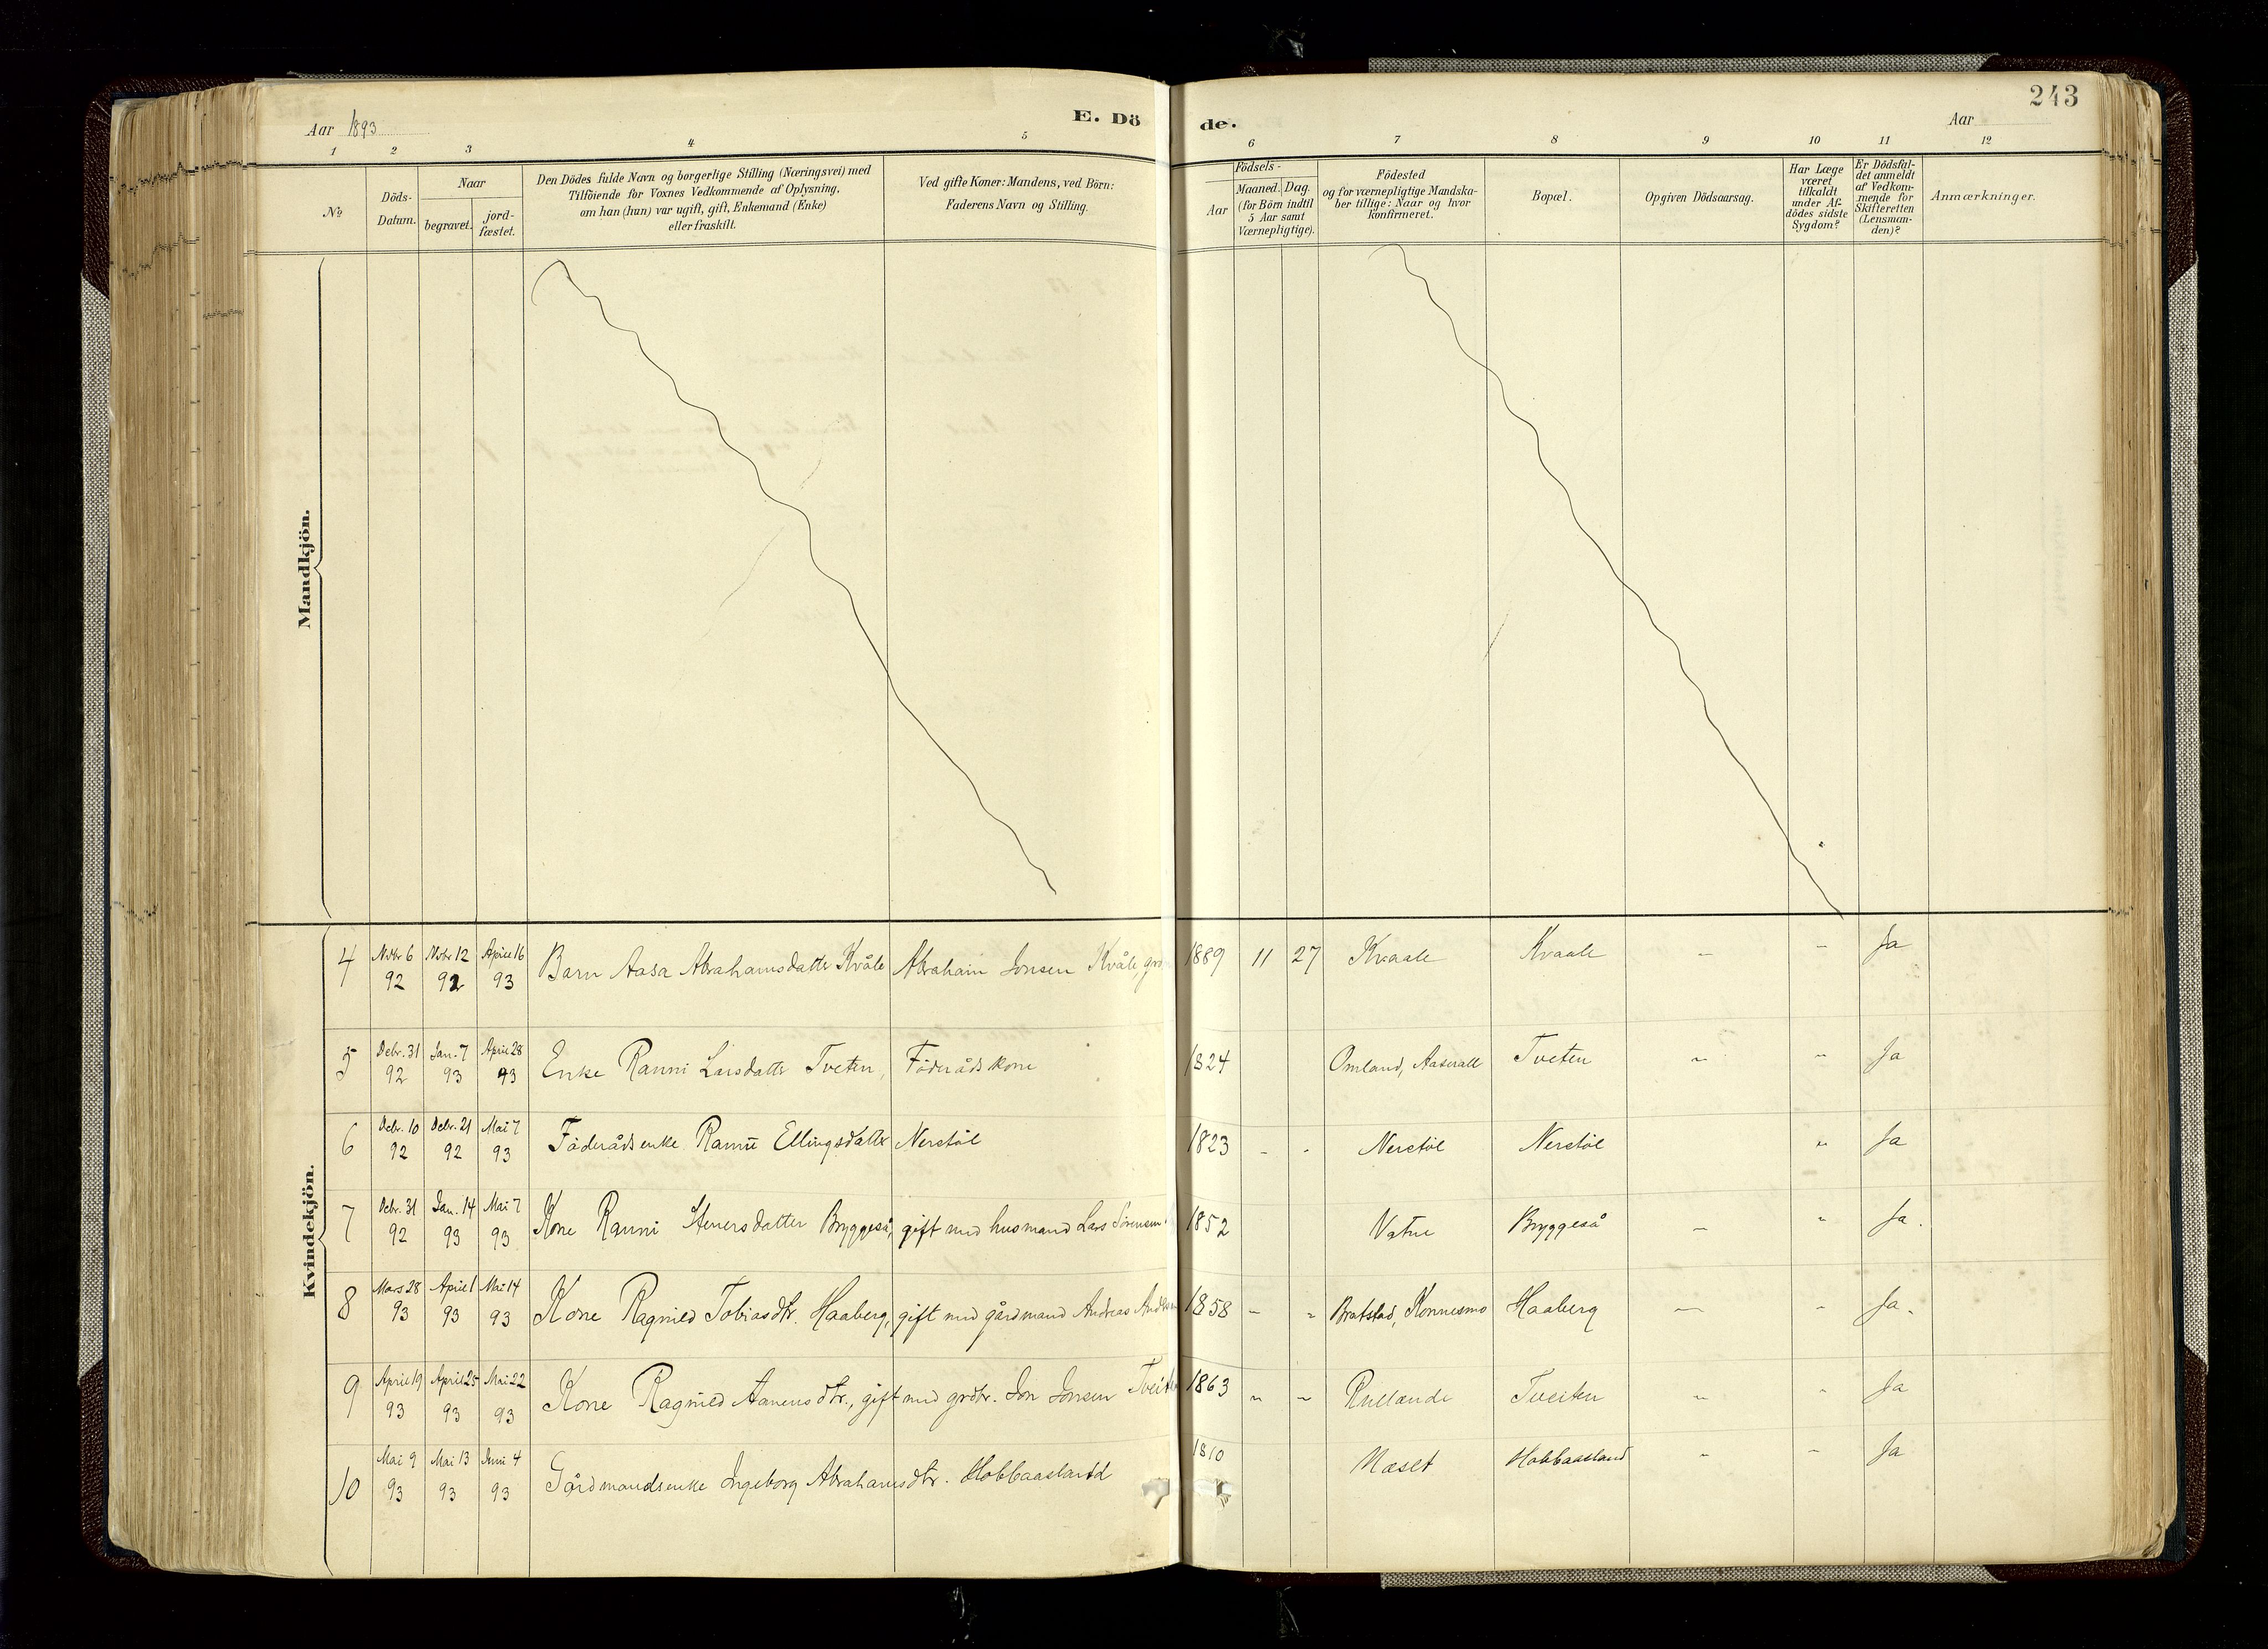 243
Aar 1893
E. Dö de.
Aar
1 2 3 4 5 6 7 8 9 10 11 12
No
Döds-Datum.
Naar
begravet. jord-fæstet.
Den Dödes fulde Navn og borgerlige Stilling (Næringsvei) med
Tilföiende for Voxnes Vedkommende af Oplysning,
om han (hun) var ugift, gift, Enkemand (Enke)
eller fraskilt.
Ved gifte Koner: Mandens, ved Börn:
Faderens Navn og Stilling.
Födsels-
Aar
Maaned. Dag.
(for Börn indtil
5 Aar samt
Værnepligtige).
Födested
og for værnepligtige Mandska-
ber tillige: Naar og hvor
konfirmeret.
Bopæl.
Opgiven Dödsaarsag.
Har Læge
været
tilkaldt
under Af-
dödes sidste
Sygdom?
Er Dödsfal-
det anmeldt
af Vedkom-
mende for
Skifteretten
(Lensman-
den)?
Anmærkninger.
Mandkjön.
Kvindekjön.
4 Novbr 6 92 Novbr 12 92 April 16 93 Barn Aasa Abrahamsdatter Kvåle Abraham Jonsen Kvåle, 1889 11 27 Kvaale Kvaale – – Ja
5 Debr. 31 92 Jan. 7 93 April 28 93 Enke Ranni Larsdatter Tveten, Föderådskone 1824 Omland, Aaserall Tveten – – Ja
6 Debr. 10 92 Debr. 21 92 Mai 7 93 Föderådsenke Ranni Ellingsdatter Nerstöl 1823 - - Nerstöl Nerstöl " Ja
7 Debr. 31 92 Jan. 14 93 Mai 7 93 Kone Ranni Stenersdatter Bryggeså, gift med husmand Lars Sörensen 1852 Vatne Bryggeså – " Ja.
8 Mars 28 93 April 1 93 Mai 14 93 Kone Ragnild Tobiasdtr. Haaberg, gift med gårdmand Andreas 1858 – - Bratstad, Konnesmo Haaberg – - Ja.
9 April 19 93 April 25 93 Mai 22 93 Kone Ragnild Aanensdtr., gift med grdbr. Jon Jonsen Tveiten 1863 – – Rullande Tveiten – - Ja
10 Mai 9 93 Mai 13 93 Juni 4 93 Gårdmandsenke Ingeborg Abrahamsdtr. Hobbaasland 1810 Naset Hobbaasland - – Ja